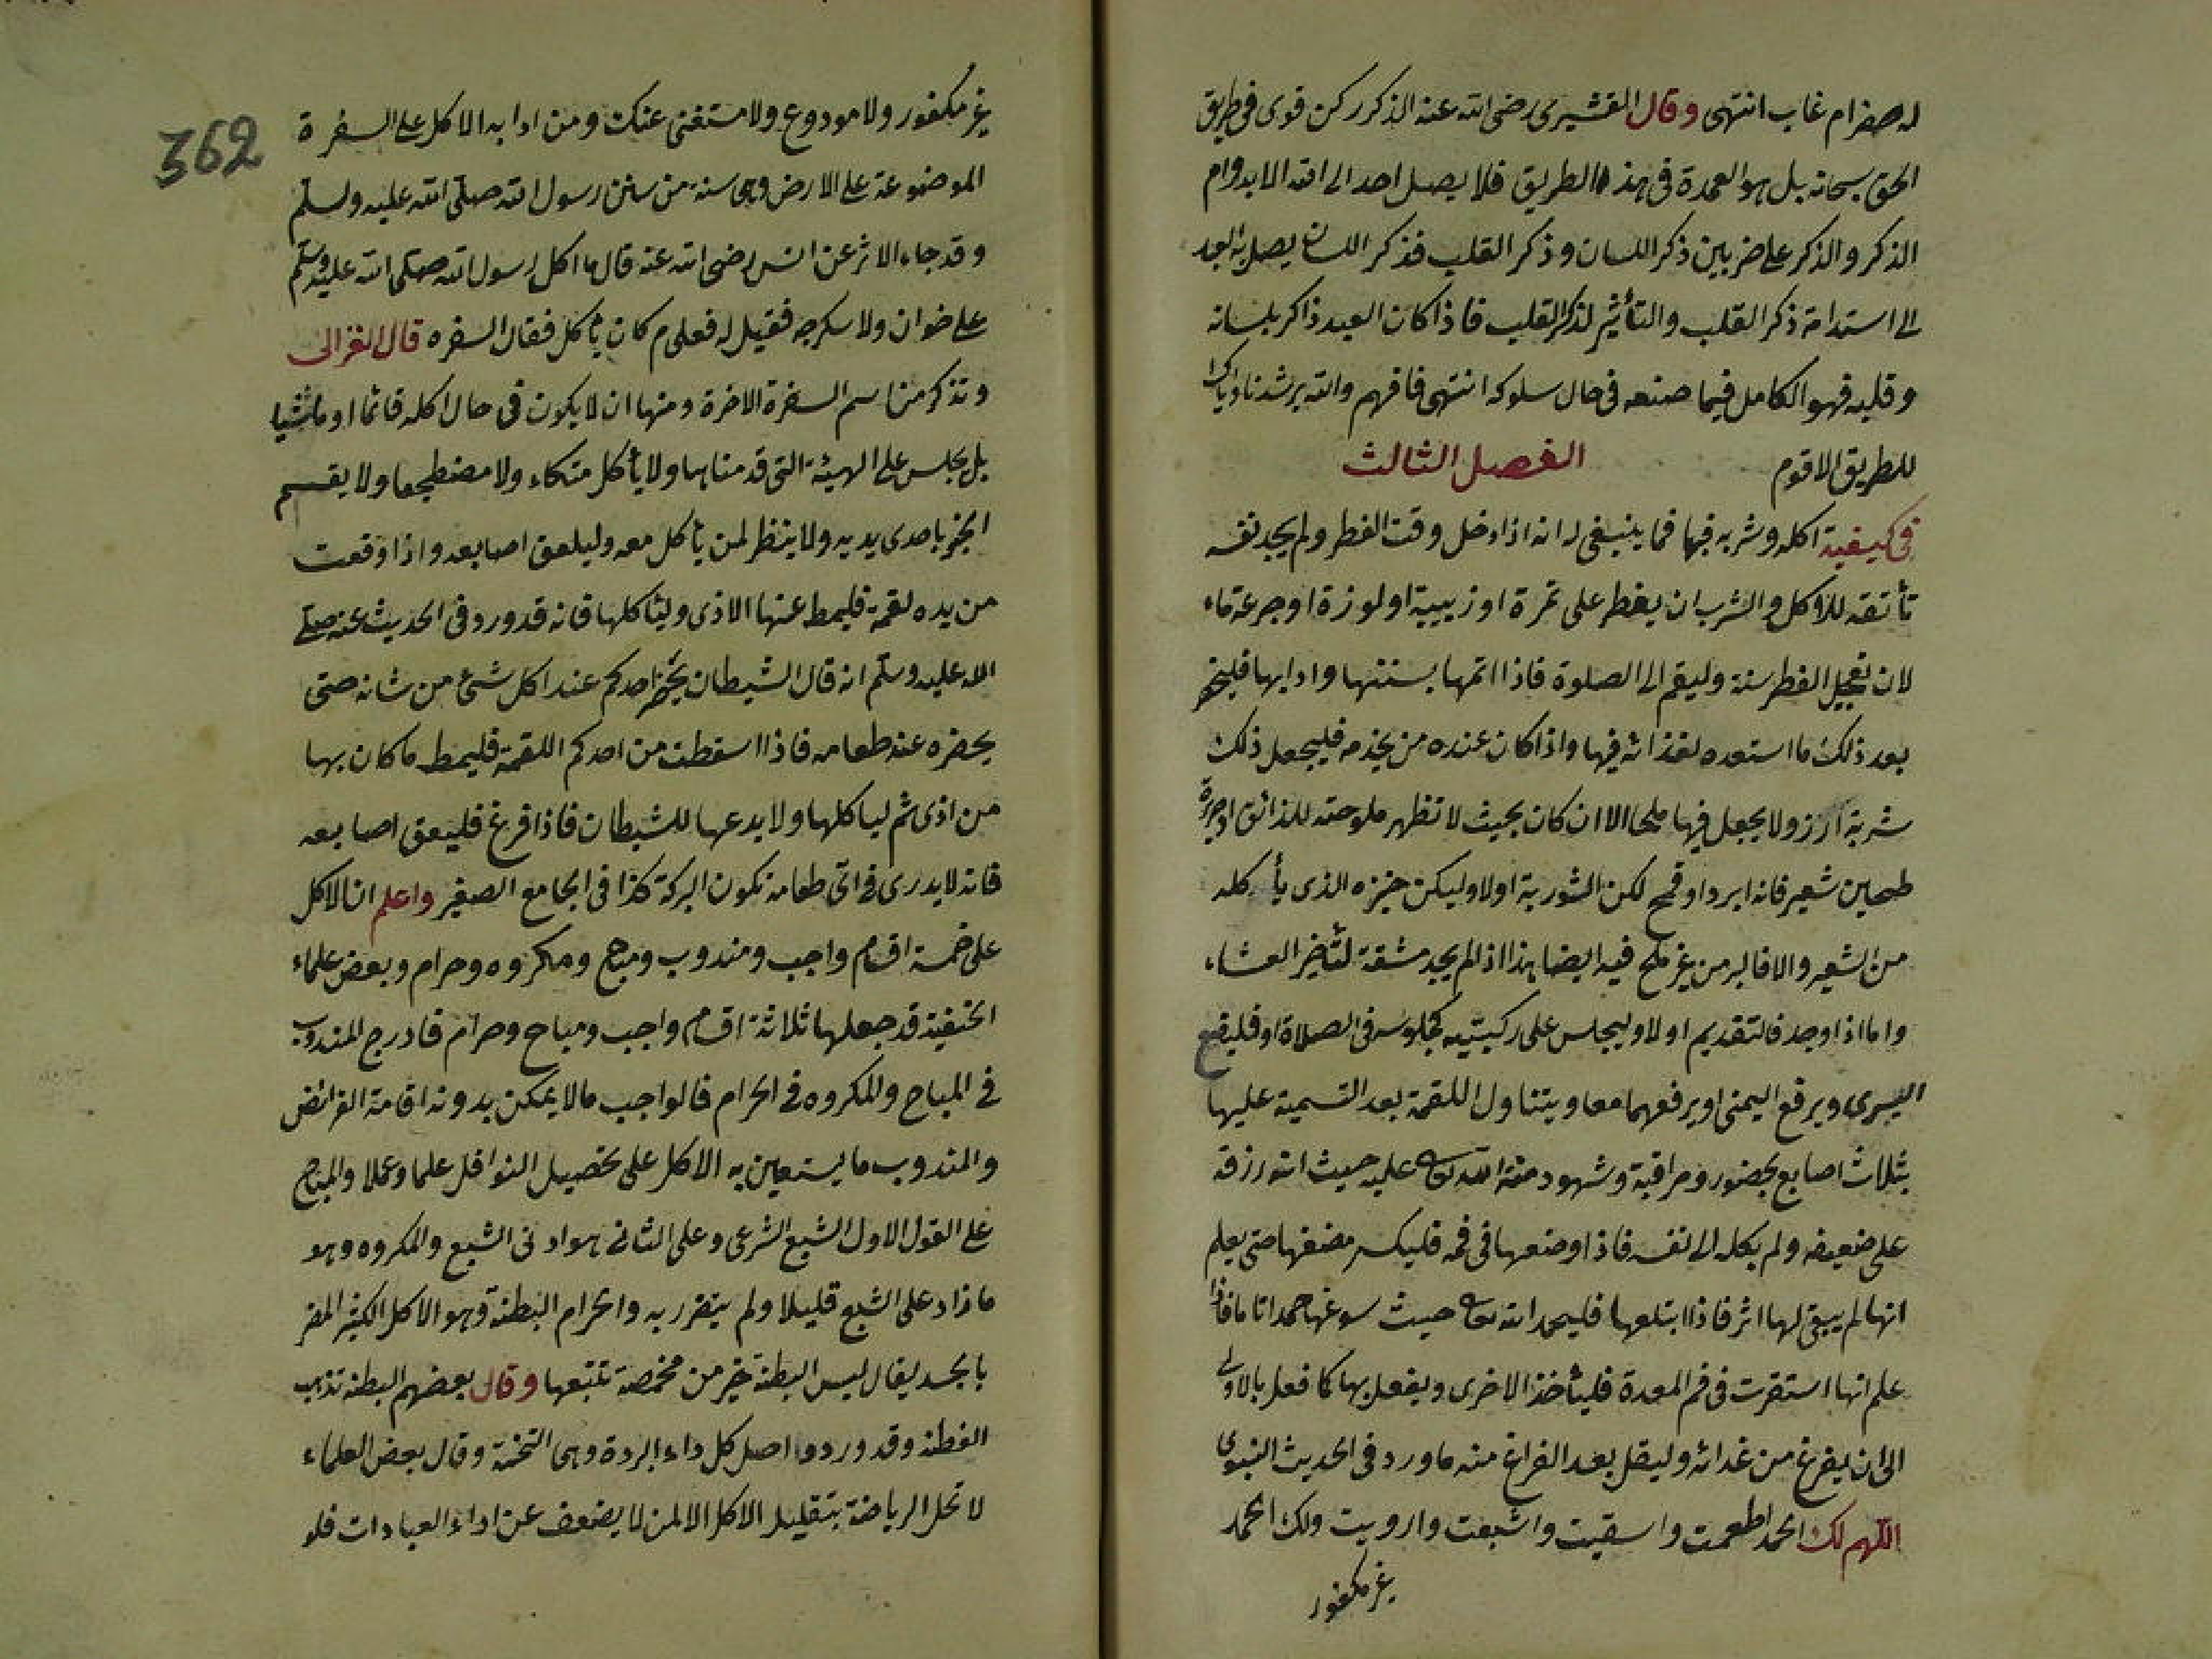 له حضر ام غاب انتهى وقال القشيرى رضى الله عنه الذكر ركن قوى فى طريق
الحق سبحانه بل هو العمدة فى هذا الطريق فلا يصل احد الى الله الا بدوام
الذكر والذكر على ضربين ذكر اللسان وذكر القلب فذكر اللسان يصل به العبد
الى استدامة ذكر القلب والتأثير لذكر القلب فاذا كان العبد ذاكر بلسانه
وقلبه فهو الكامل فيما صنعه فى حال سلوكه انتهى فافهم والله يرشدنا واياك
للطريق الاقوم الفصل الثالث
فى كيفية اكله وشربه فيها فما ينبغى له انه اذا دخل وقت الفطر ولم يجد نفسه
تأنقه للاكل والشرب ان يفطر على تمرة او زبيبة او لوزة او جرعة ماء
لان تعجيل الفطر سنة وليقم الى الصلوة فاذا اتمها بسننها وادابها فليحضر
بعد ذلك ما استعده لغذائه فيها واذا كان عنده من يخدمه فليجعل ذلك
شربة ارز ولا يجعل فيها ملحا الا ان كان بحيث لا تظهر ملوحته للذائق
طحين شعير فانه ابرد او قمح لكن الشوربة اولا وليكن خبزه الذى يأكله
من الشعير والا فالبر من غير ملح فيه ايضا هذا اذا لم يجد مشقة لتأخير العشاء
واما اذا وجد فالتقديم اولا وليجلس على ركبتيه كجلوسه فى الصلاة او فليضع
اليسرى ويرفع اليمنى او يرفعهما معا ويتناول اللقمة بعد التسمية عليها
بثلاث اصابع بحضور ومراقبة وشهود منة الله تعالى عليه حيث انه رزقه
على ضعفه ولم يكله الى نفسه فاذا وضعها فى فمه فليكسر مضغها حتى يعلم
انها لم يبقى لها اثر فاذا ابتلعها فليحمد الله تعالى حيث سوغها حمدا تاما فاذا
علم انها استقرت فى فم المعدة فليأخذ الاخرى ويفعل بها كما فعل بالاولى
الى ان يفرغ من غدائه وليقل بعد الفراغ منه ما ورد فى الحديث النبوى
اللهم لك الحمد اطعمت واسقيت واشبعت وارويت ولك الحمد
غير مكفور
362
غير مكفور ولا مودوع ولا مستغنى عنك ومن ادابه الاكل على السفرة
الموضوعة على الارض وهى سنة من سنن رسول الله صلى الله عليه وسلم
وقد جاء الاثر عن انس رضى الله عنه قال ما اكل رسول الله صلى الله عليه وسلم
على خوان ولا سكرجه فقيل له فعلى م كان يأكل فقال السفره قال الغزالى
وتذكر من اسم السفرة الاخرة ومنها ان لا يكون فى حال اكله قائما او ماشيا
بل يجلس على الهيئة التى قدمناها ولا يأكل متكاء ولا مضطجعا ولا يقسم
الخبز باحدى يديه ولا ينتظر لمن يأكل معه وليلعق اصابعه واذا وقعت
من يده لقمة فليمط عنها الاذى وليأكلها فانه قد ورد فى الحديث عنه صلى
الله عليه وسلم انه قال الشيطان يحضر احدكم عند اكل شئ من شانه حتى
يحضره عند طعامه فاذا اسقطت من احدكم اللقمة فليمط ما كان بها
من اذى ثم لياكلها ولا يدعها للشيطان فاذا فرغ فليعق اصابعه
فانه لا يدرى فى اى طعامه تكون البركة كذا فى الجامع الصغير واعلم ان الاكل
على خمسة اقسام واجب ومندوب ومباح ومكروه وحرام وبعض علماء
الحنيفية قد جعلها ثلاثة اقسام واجب ومباح وحرام فادرج المندوب
فى المباح والمكروه فى الحرام فالواجب ما لا يمكن بدونه اقامة الفرائض
والمندوب ما يستعين به الاكل على تحصيل النوافل علما وعملا والمباح
على القول الاول الشبع الشرعى وعلى الثانى هو ادنى الشبع والمكروه وهو
ما زاد على الشبع قليلا ولم يتضرر به والحرام البطنة وهو الاكل الكثير المضر
بالجسد يقال ليس البطنة خير من مخمصة تتبعها وقال بعضهم البطنه تذهب
الفطنه وقد ورد و اصل كل داء البردة وهى التخمة وقال بعض العلماء
لا تحل الرياضة بتقليل الاكل الا لمن لا يضعف عن اداء العبادات فلو